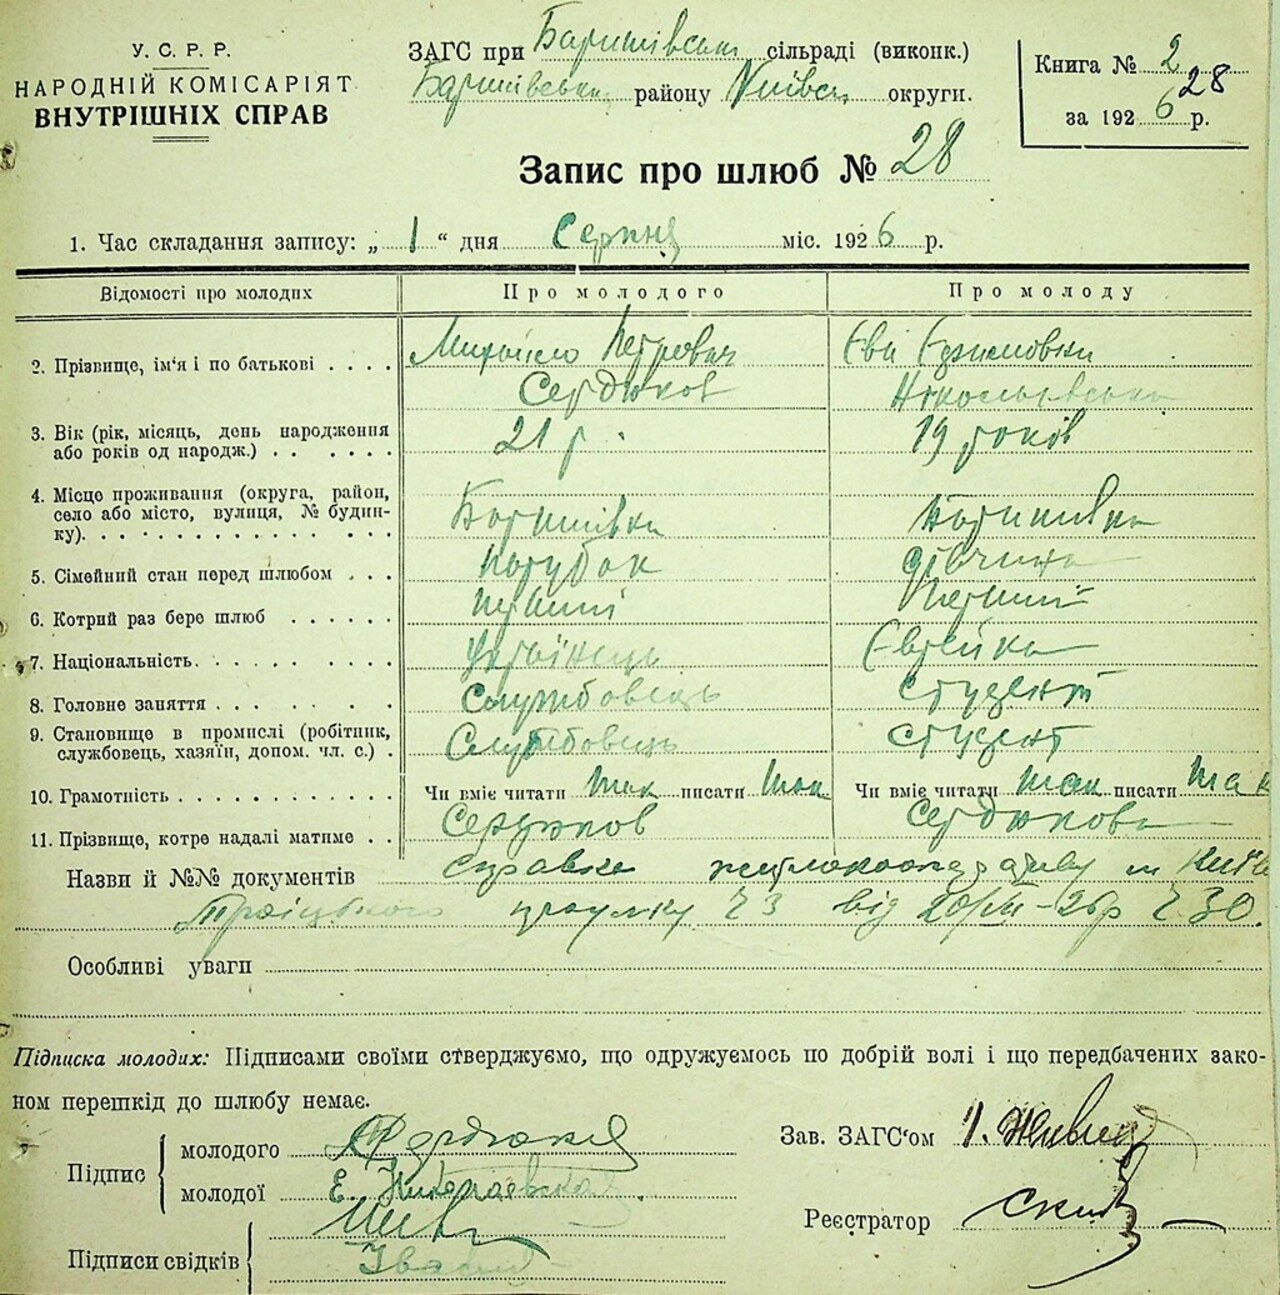 У. С. Р. Р.
НАРОДНІЙ КОМІСАРІЯТ
ВНУТРІШНІХ СПРАВ
ЗАГС при Баришівськ. сільраді (виконк.)
Баришівськ. району Київськ. округи.
Книга № 2
28
за 1926 р.
Запис про шлюб № 28
1. Час складання запису: „ 1 “ дня Серпня міс. 1926 р.
Відомості про молодих Про молодого Про молоду
2. Прізвище, ім'я і по батькові . . . . Михайло Петрович
Сердюков
Нікольаєвська
3. Вік (рік, місяць, день народження
або років од народж.) . . . . . . 21 р. 19 років
4. Місце проживання (округа, район,
село або місто, вулиця, № будин-
ку). . . . . . . . . . . . . . . Баришівка Баришівка
5. Сімейний стан перед шлюбом . . . Парубок дівчина
6. Котрий раз бере шлюб . . . . . . Перший Перший
7. Національність. . . . . . . . . . Українець Єврейка
8. Головне заняття . . . . . . . . Службовець студент
9. Становище в промислі (робітник,
службовець, хазяїн, допом. чл. с.) . Службовець студент
10. Грамотність . . . . . . . . . . . . Чи вміє читати так писати так Чи вміє читати так писати так
11. Прізвище, котре надалі матиме . . Сердюков Сердюкова
Назви й №№ документів справка житлокооперативу м Київ
Троіцького ч 3 від 20/VII-26р ч 30.
Особливі уваги
Підписка молодих: Підписами своїми стверджуємо, що одружуємось по добрій волі і що передбачених зако-
ном перешкід до шлюбу немає.
Підпис
молодого
молодої Е. Николаевская
Зав. ЗАГС'ом
Реєстратор
Підписи свідків